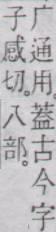 广通用。蓋古今字
子感切。八部。